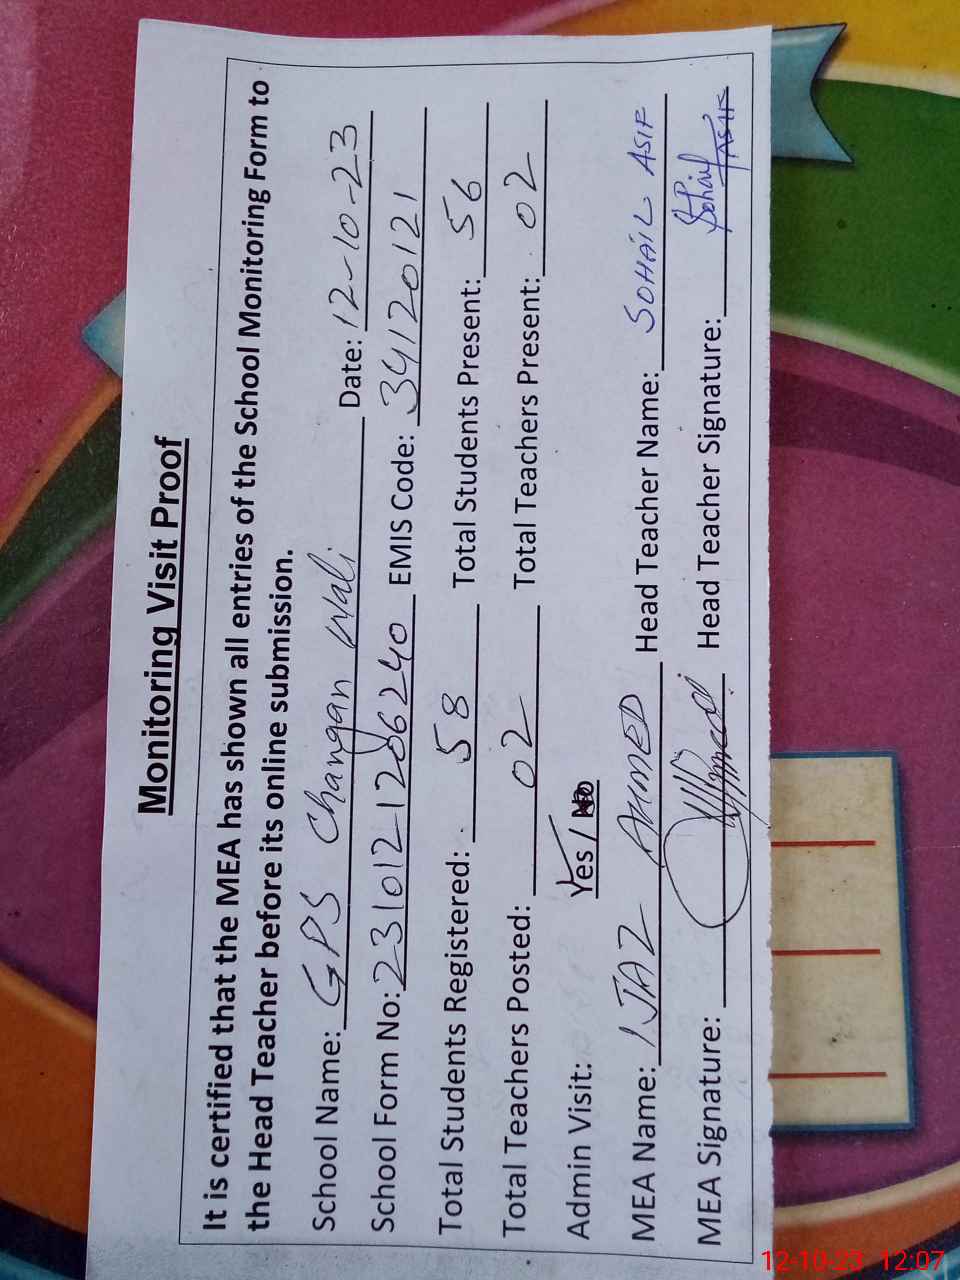 Monitoring Visit Proof
It is certified that the MEA has shown all entries of the School Monitoring Form to
the Head Teacher before its online submission.
School Name: GPS Changan Wali Date: 12-10-23
School Form No: 2310121206240 EMIS Code: 34120121
Total Students Registered: 58 Total Students Present: 56
Total Teachers Posted: 02 Total Teachers Present: 02
Admin Visit: Yes / No
MEA Name: IJAZ AHMED Head Teacher Name: SOHAIL ASIF
MEA Signature: Head Teacher Signature: Sohail ASIF
12-10-23 12:07